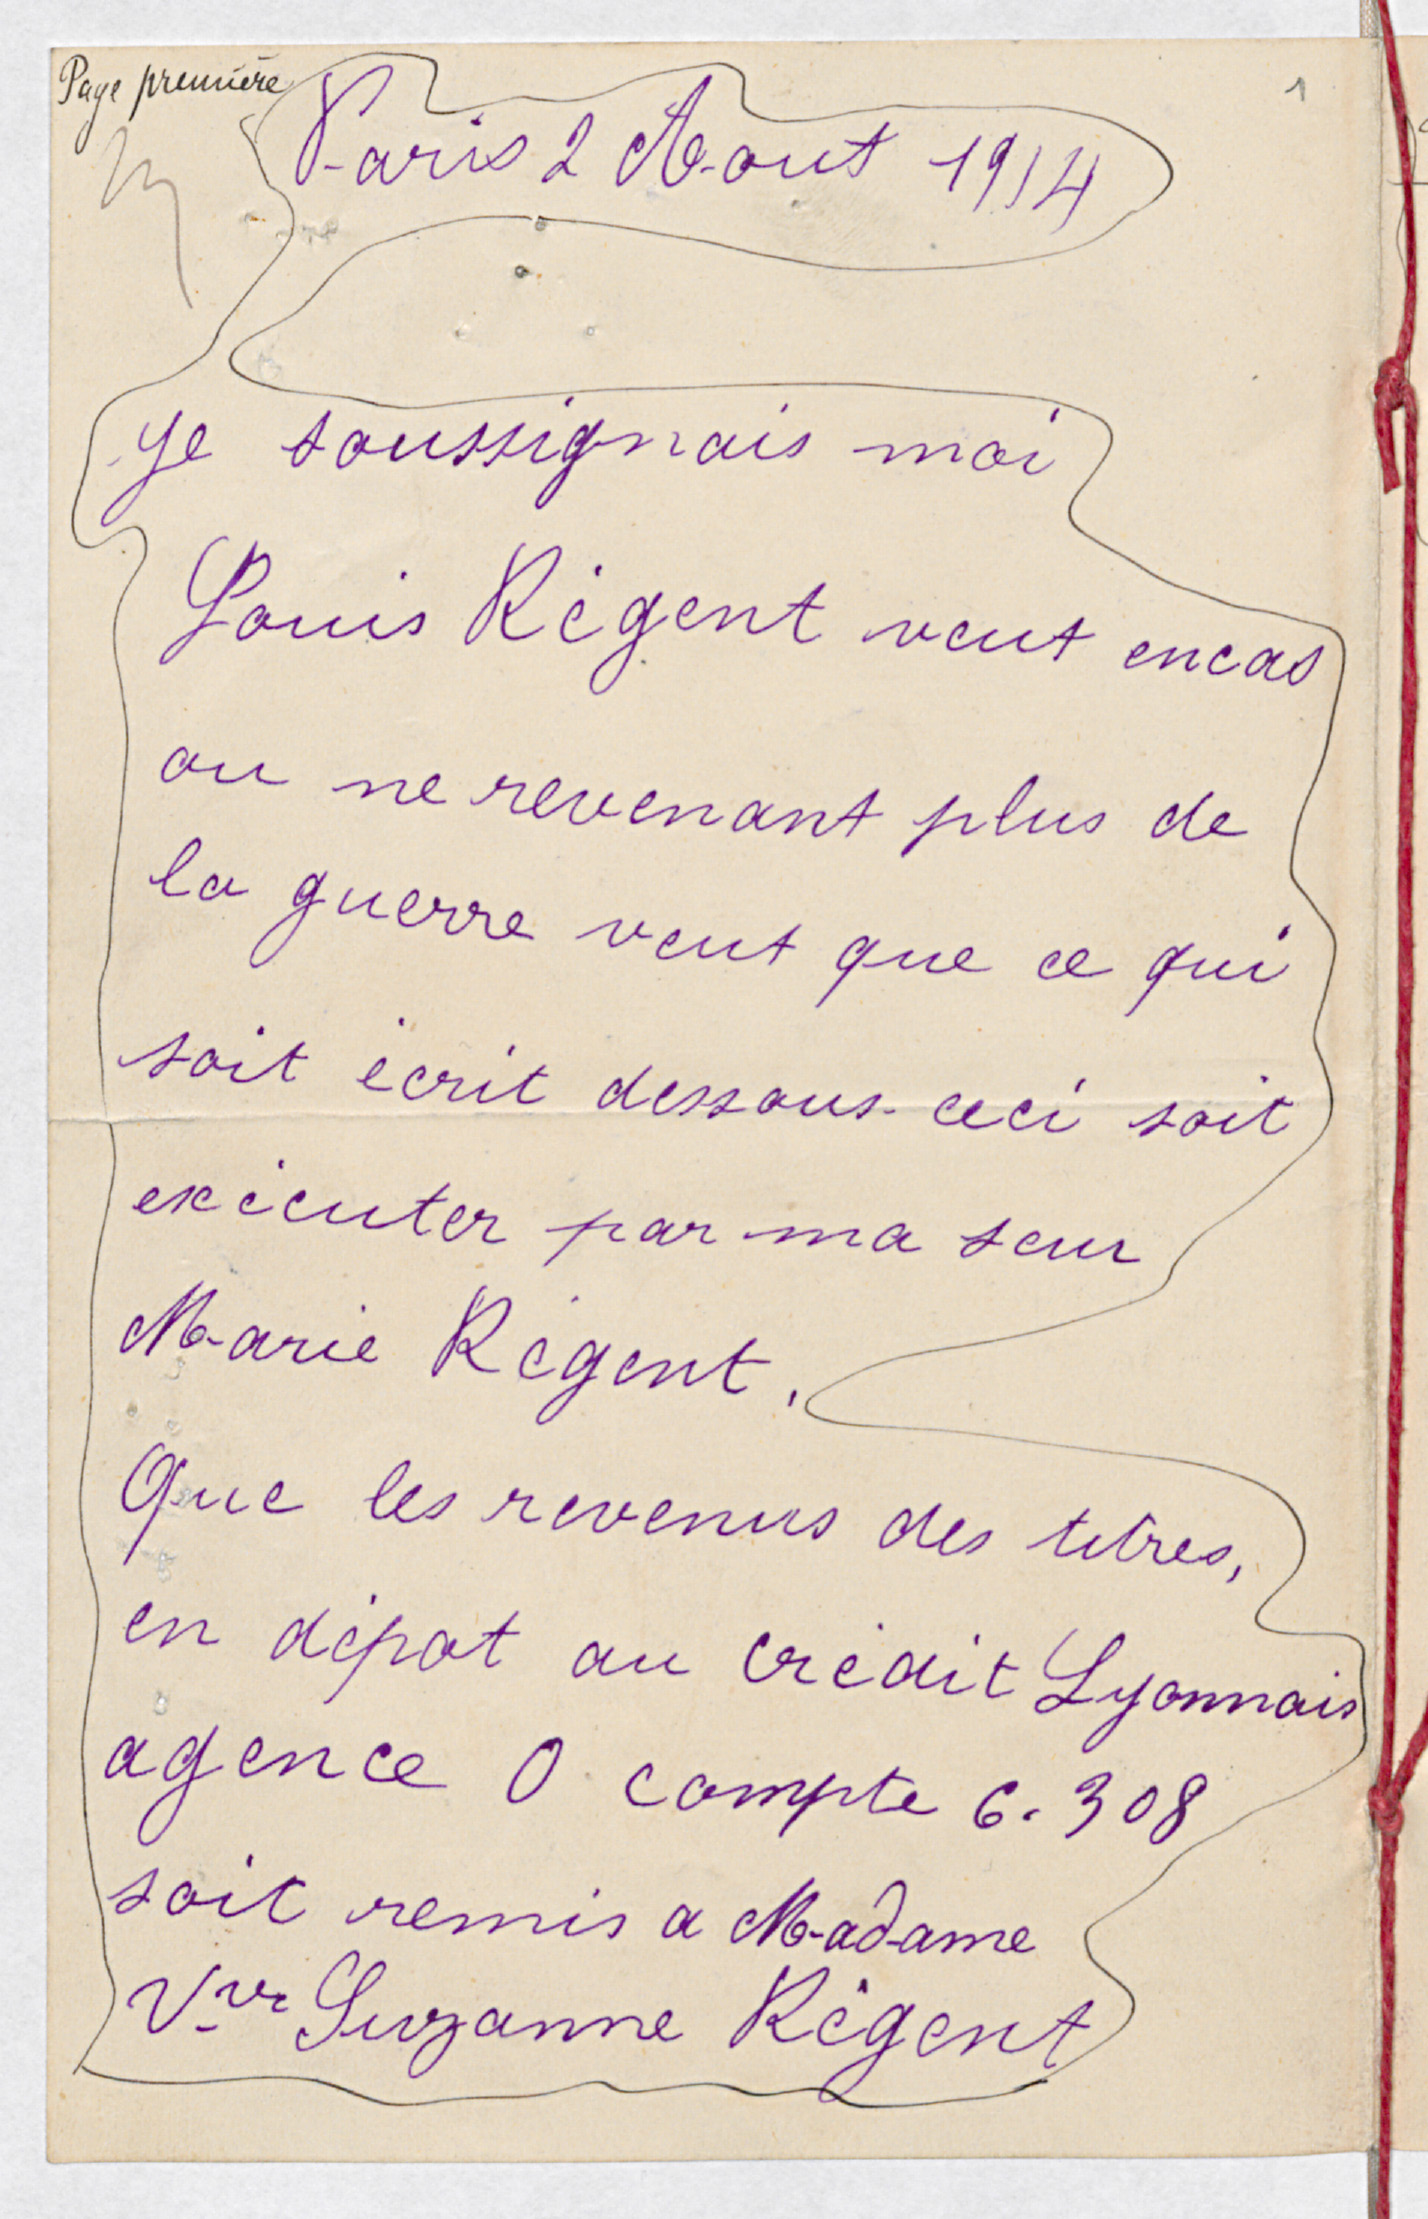 Page première
1
Paris 2 Aout 1914
Je soussignais moi
Louis Régent veut encas
ou ne revenant plus de
la guerre veut que ce qui
soit écrit dessous ceci soit
exécuter par ma seur
Marie Régent.
Que les revenus des titres,
en dépot au crédit Lyonnais
agence O compte 6.308
soit remis a Madame
Vve Suzanne Régent